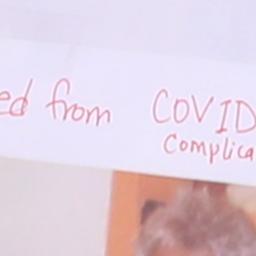 ed from COVID
Complica